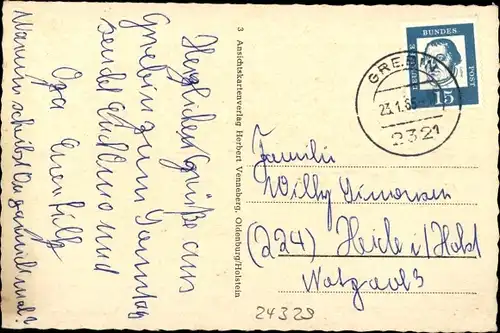 Herzliche Grüße aus
Grebin zum Sonntag
sendet Euch Omo und
Opa
Warum schreibst Du garnicht mal?
3 Ansichtskartenverlag Herbert Venneberg, Oldenburg/Holstein
DEUTSCHE BUNDESPOST
15
GREBIN
23.1.6
2321
Familie
Willy Simonsen
(224) Heide i/Holst
24329